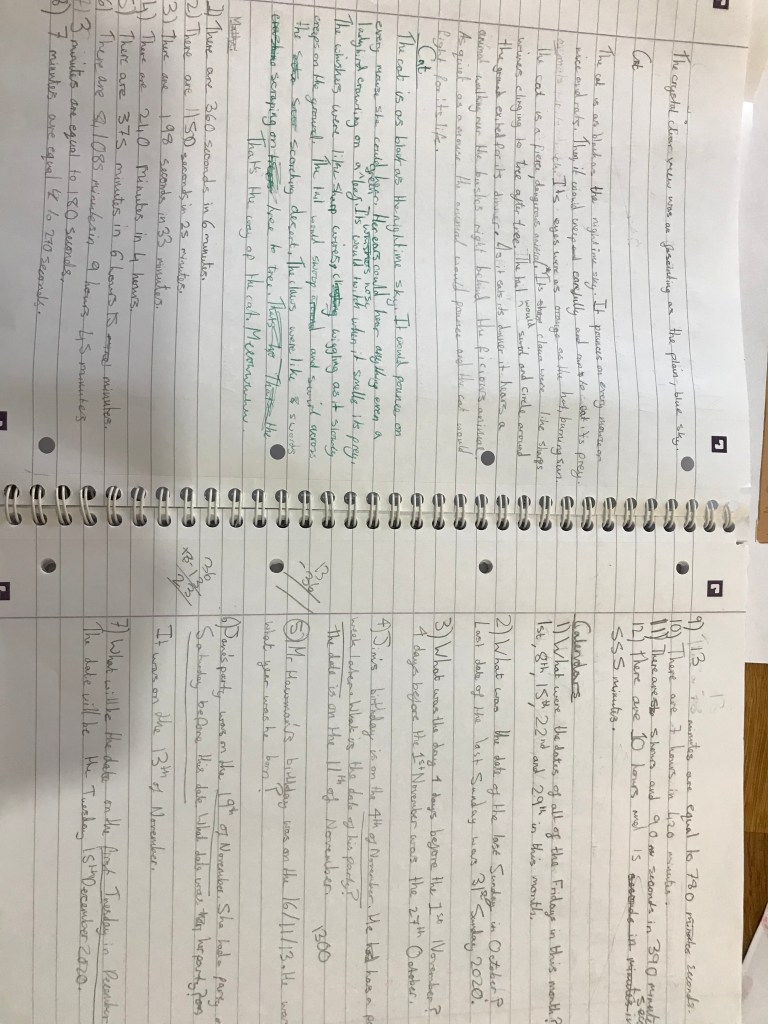 The crystal clear view was as fascinating as the plain, blue sky.
Cat
The cat is as black as the night time sky. It pounces on every mouse on
mice and rats. They it would creep and carefully and runs to eat it's prey.
It's eyes were as orange as the hot, burning sun
The cat is a fierce, dangerous animal. It's claws were like sharp
wires clinging to tree after tree. The tail would swirl and circle around
the ground exited for its dinner. As it eats its dinner it hears a
animal walking over the bushes right behind the ficious animal
As quiet as a mouse the animal would pounce and the cat would
fight for its life.
Cat
The cat is as black as the night time sky. It would pounce on
every mouse she could see. Her ears could hear anything even a
ladybird crawling on a leaf. Its whiskers nose would twitch when it smells its prey.
The whiskers were like sharp wires, wiggling as it slowly
creeps on the ground. The tail would swoop and swirl across
the scorching desert. The claws were like 8 swords
scraping on tree to tree. Thats the
Thats the way of the cat. Meeowwwww.
Maths
1) There are 360 seconds in 6 minutes.
2) There are 1150 seconds in 25 minutes.
3) There are 198 seconds in 33 minutes.
4) There are 240 minutes in 4 hours
5) There are 375 minutes in 6 hours 15 minutes.
6) There are 8,1085 minutes in 9 hours 45 minutes
7) 3 minutes are equal to 180 seconds.
8) 7 minutes are equal to 270 seconds.
9) 13 minutes are equal to 780 seconds.
10) There are 7 hours in 420 minutes.
11) There are 5 hours and 90 seconds in 390 minutes
12) There are 10 hours and 15 seconds in
555 minutes.
Calendars
1) What were the dates of all of the Fridays in this month?
1st, 8th, 15th, 22nd and 29th in this month.
2) What was the date of the last Sunday in October?
Last date of the last Sunday was 31st Sunday 2020.
3) What was the day 4 days before the 1st November?
4 days before the 1st November was the 27th October.
4) J birthday is on the 4th of November. He has a
week later. What is the date of his party?
The date is on the 11th of November.
1300
5) Mr birthday was on the 16/11/13. He was
what year was he born?
13
-36
6) Janes party was on the 19th of November. She had a party
Saturday before this date. What date was her party?
36
It was on the 13th of November.
7) What will be the date on the first Tuesday in December
The date will be the Tuesday 15th December 2020.